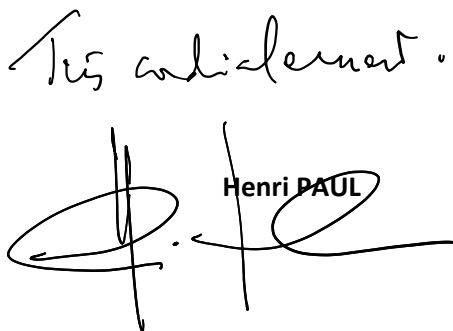 Très cordialement.
Henri PAUL